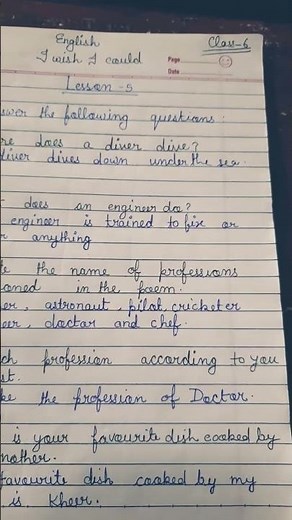 English
Class-6
I wish I could
Page
Date
Lesson - 5
the following questions:
does a diver dive?
diver dives down under the sea.
does an engineer do?
engineer is trained to fix or
anything
the name of professions
in the poem.
astronaut, pilot, cricketer
doctar and chef.
profession according to you
the profession of Doctor.
is your favourite dish cooked by
favourite dish cooked by my
is Kheer.